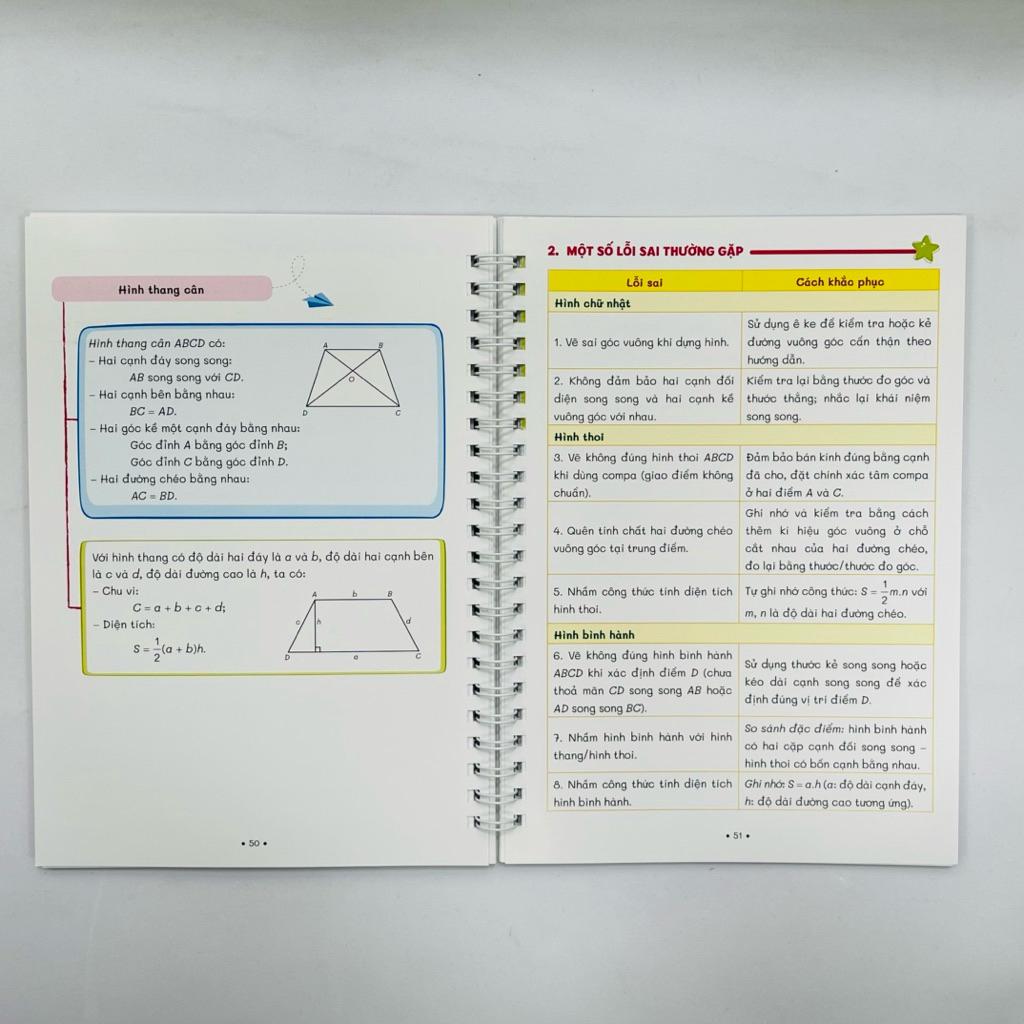 Hình thang cân
Hình thang cân ABCD có:
– Hai cạnh đáy song song:
AB song song với CD.
– Hai cạnh bên bằng nhau:
BC = AD.
– Hai góc kề một cạnh đáy bằng nhau:
Góc đỉnh A bằng góc đỉnh B;
Góc đỉnh C bằng góc đỉnh D.
– Hai đường chéo bằng nhau:
AC = BD.
A B
O
D C
Với hình thang có độ dài hai đáy là a và b, độ dài hai cạnh bên
là c và d, độ dài đường cao là h, ta có:
– Chu vi:
C = a + b + c + d;
– Diện tích:
S = 1/2(a + b)h.
A b B
c h d
D a C
• 50 •
2. MỘT SỐ LỖI SAI THƯỜNG GẶP
Lỗi sai
Cách khắc phục
Hình chữ nhật
1. Vẽ sai góc vuông khi dựng hình.
Sử dụng ê ke để kiểm tra hoặc kẻ
đường vuông góc cẩn thận theo
hướng dẫn.
2. Không đảm bảo hai cạnh đối
diện song song và hai cạnh kề
vuông góc với nhau.
Kiểm tra lại bằng thước đo góc và
thước thẳng; nhắc lại khái niệm
song song.
Hình thoi
3. Vẽ không đúng hình thoi ABCD
khi dùng compa (giao điểm không
chuẩn).
Đảm bảo bán kính đúng bằng cạnh
đã cho, đặt chính xác tâm compa
ở hai điểm A và C.
4. Quên tính chất hai đường chéo
vuông góc tại trung điểm.
Ghi nhớ và kiểm tra bằng cách
thêm kí hiệu góc vuông ở chỗ
cắt nhau của hai đường chéo,
đo lại bằng thước/thước đo góc.
5. Nhầm công thức tính diện tích
hình thoi.
Tự ghi nhớ công thức: S = 1/2m.n với
m, n là độ dài hai đường chéo.
Hình bình hành
6. Vẽ không đúng hình bình hành
ABCD khi xác định điểm D (chưa
thoả mãn CD song song AB hoặc
AD song song BC).
Sử dụng thước kẻ song song hoặc
kéo dài cạnh song song để xác
định đúng vị trí điểm D.
7. Nhầm hình bình hành với hình
thang/hình thoi.
So sánh đặc điểm: hình bình hành
có hai cặp cạnh đối song song –
hình thoi có bốn cạnh bằng nhau.
8. Nhầm công thức tính diện tích
hình bình hành.
Ghi nhớ: S = a.h (a: độ dài cạnh đáy,
h: độ dài đường cao tương ứng).
• 51 •